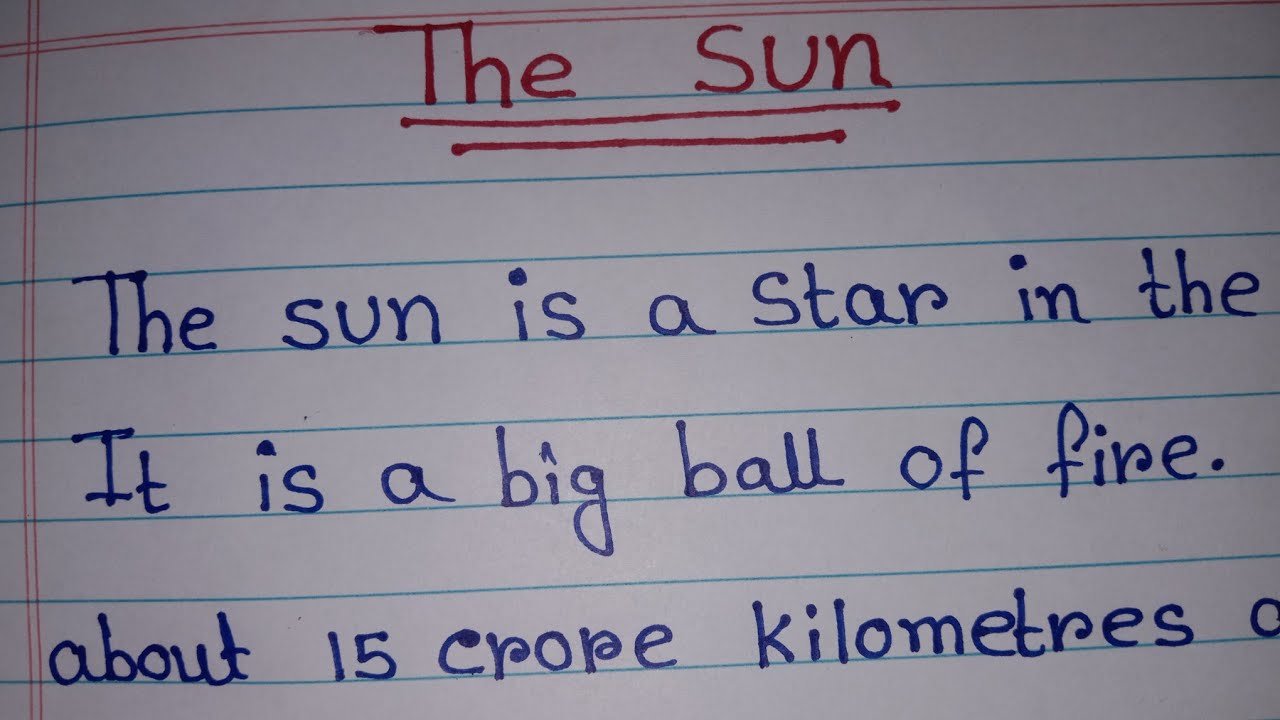 The Sun
The sun is a star in the
It is a big ball of fire.
about 15 crore kilometres